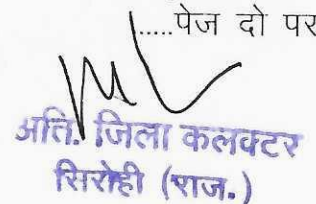 .....पेज दो पर
अति. जिला कलक्टर
सिरोही (राज.)